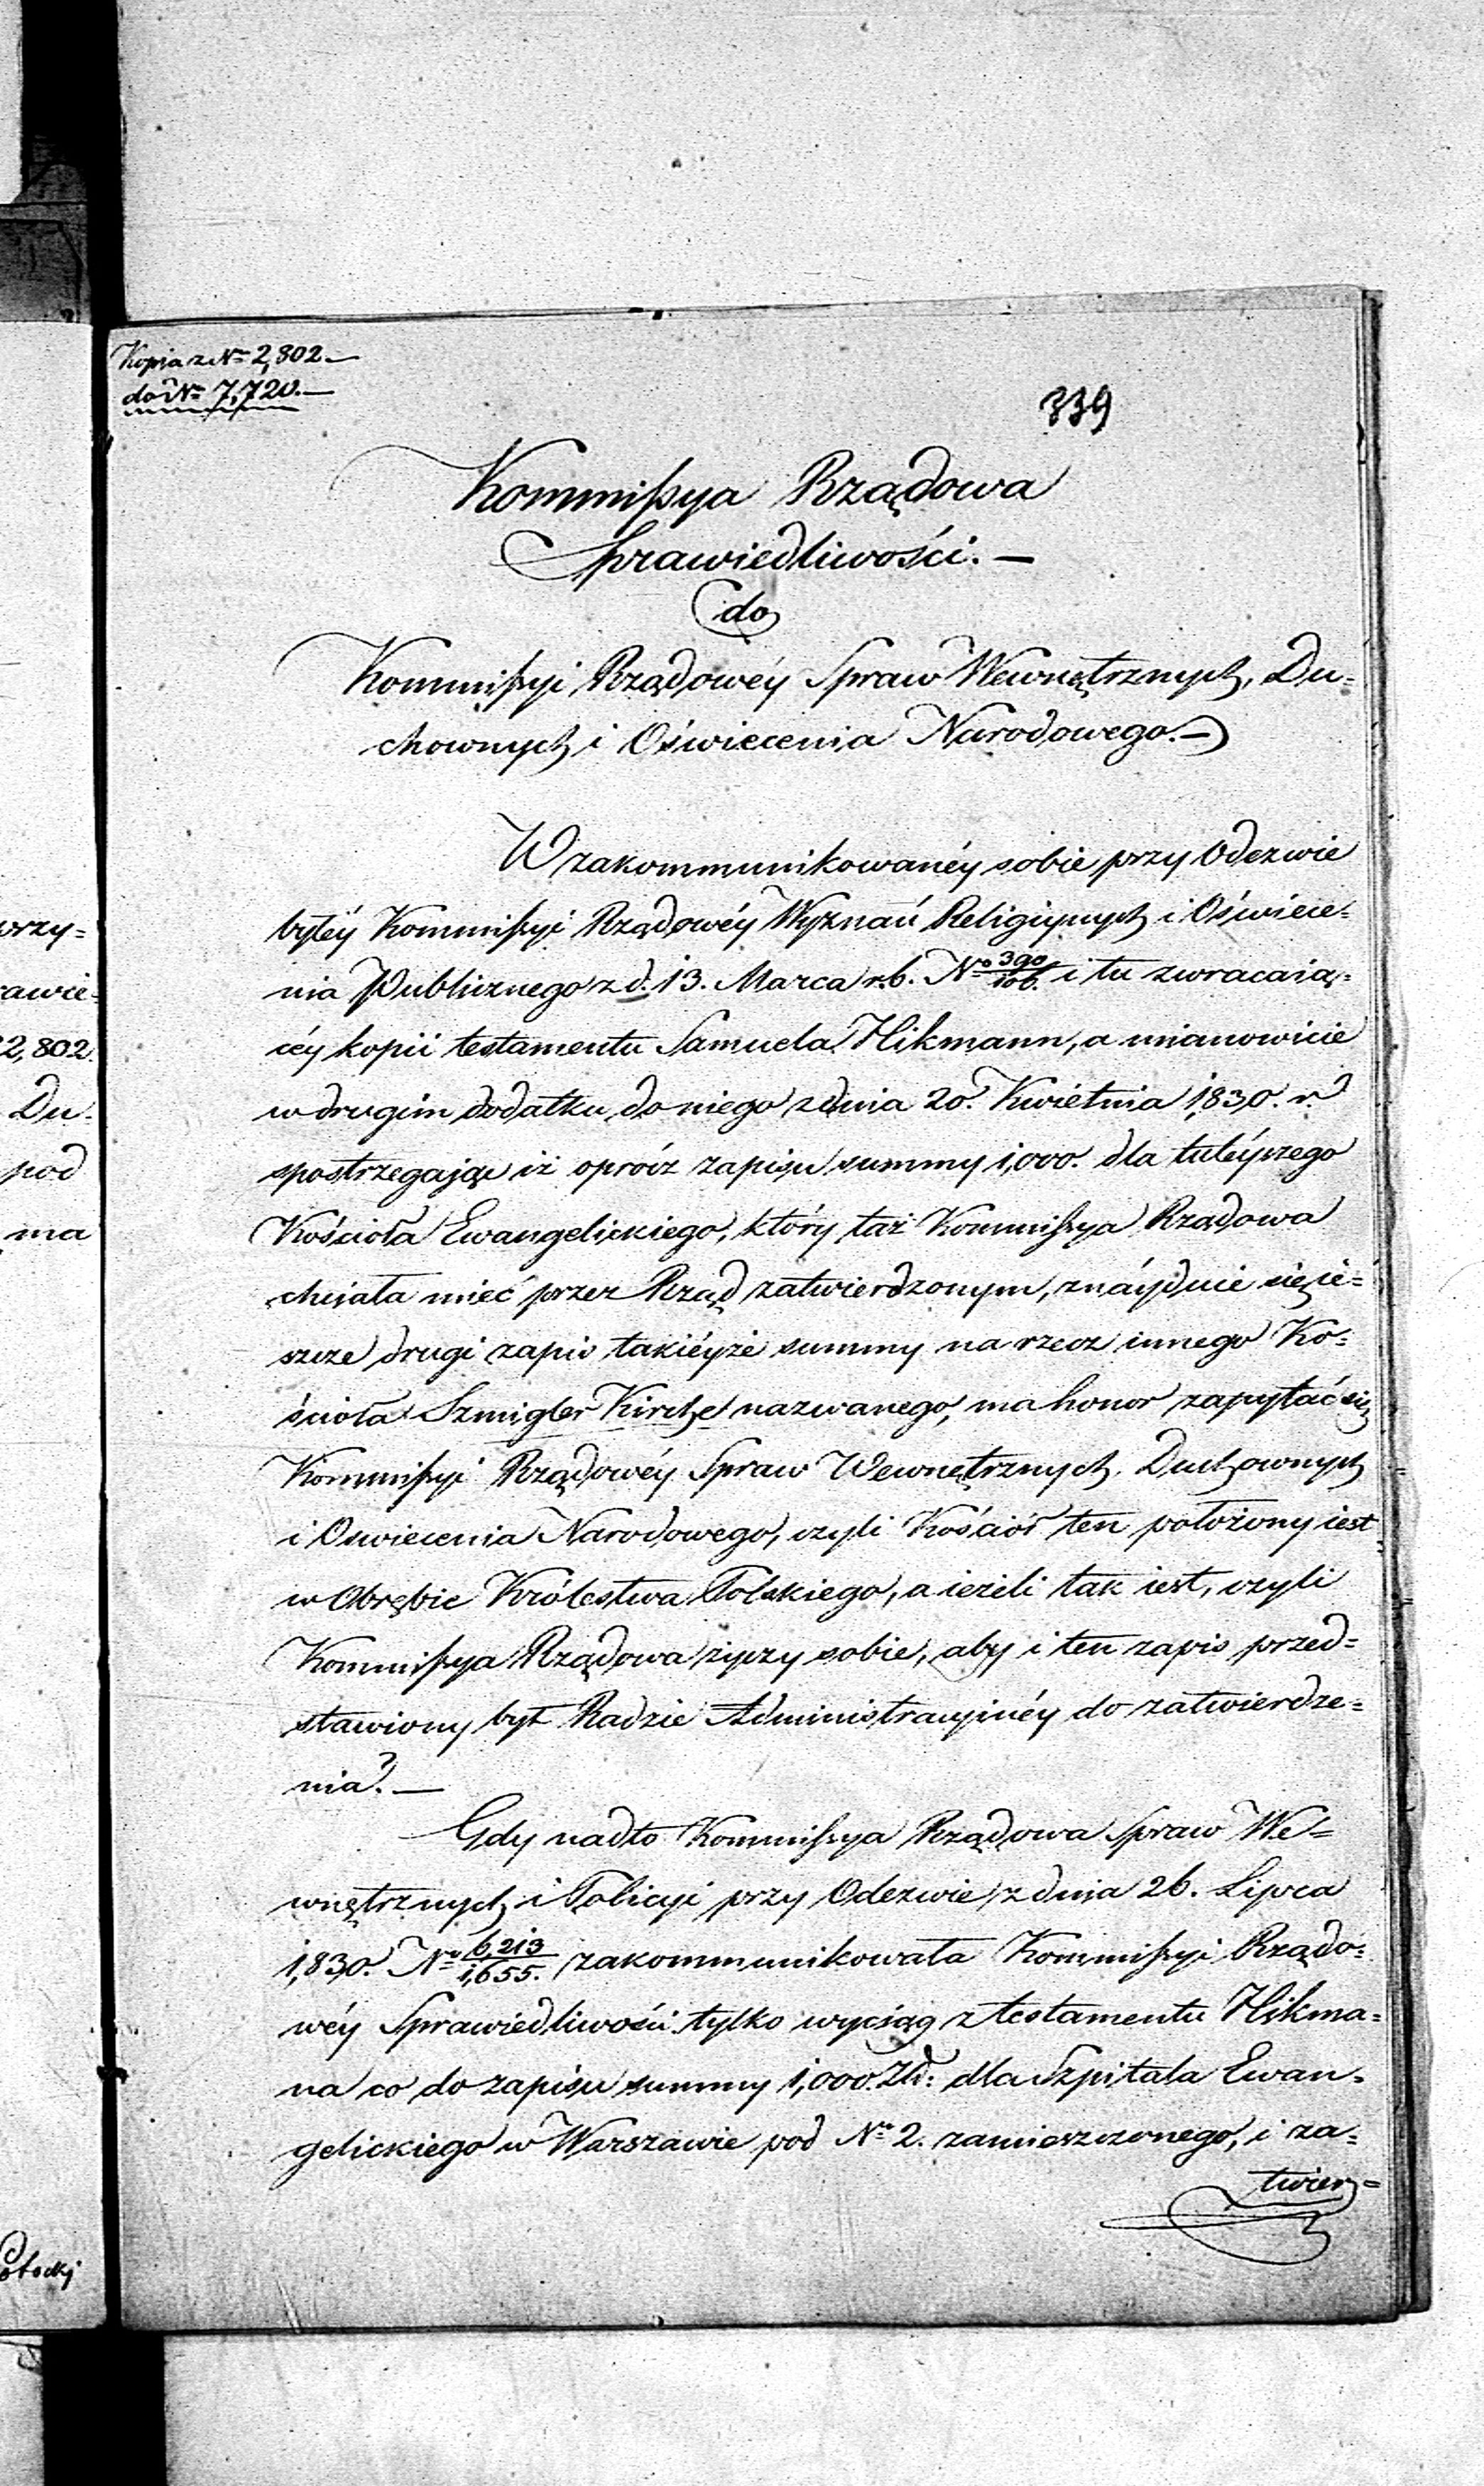 Kopia z Nº 2,802.—
do Nº 7,720.—
339
Kommißya Rządowa
Sprawiedliwości.—
do
Kommißyi Rządowéy Spraw Wewnętrznych, Du-
chownych i Oświecenia Narodowego.—
W zakommunikowanéy sobie przy Odezwie
byłéy Kommißyi Rządowéy Wyznań Religiynych i Oświece-
nia Publicznego z d. 13. Marca r.b. Nº 390/106. i tu zwracaią-
céy kopii testamentu Samuela Hikmann, a mianowicie
w drugim dodatku do niego z dnia 20. Kwietnia 1,830. r.
spostrzegając iż oprócz zapisu summy 1,000. dla tuteyszego
Kościoła Ewangelickiego, który taż Kommißya Rządowa
chciała mieć przez Rząd zatwierdzonym, znayduie się ie-
szcze drugi zapis takiéyże summy na rzecz innego Ko-
ścioła Szmigler Kirche nazwanego, ma honor zapytać się
Kommißyi Rządowéy Spraw Wewnętrznych, Duchownych
i Oswiecenia Narodowego, czyli Kościół ten położony iest
w Obrębie Królestwa Polskiego, a ieżeli tak iest, czyli
Kommißya Rządowa życzy sobie, aby i ten zapis przed-
stawiony był Radzie Administracyinéy do zatwierdze-
nia?.—
Gdy nadto Kommißya Rządowa Spraw We-
wnętrznych i Policyi przy Odezwie z dnia 26. Lipca
1,830. Nº 6,213/1,655. zakommunikowała Kommißyi Rządo-
wéy Sprawiedliwości tylko wyciąg z testamentu Hikma-
na co do zapisu summy 1,000. Zł: dla Szpitala Ewan-
gelickiego w Warszawie pod Nº 2. zamieszczonego, i za-
twier-
wrzy-
rawie-
22,802
Du-
pod
ma
Potocki